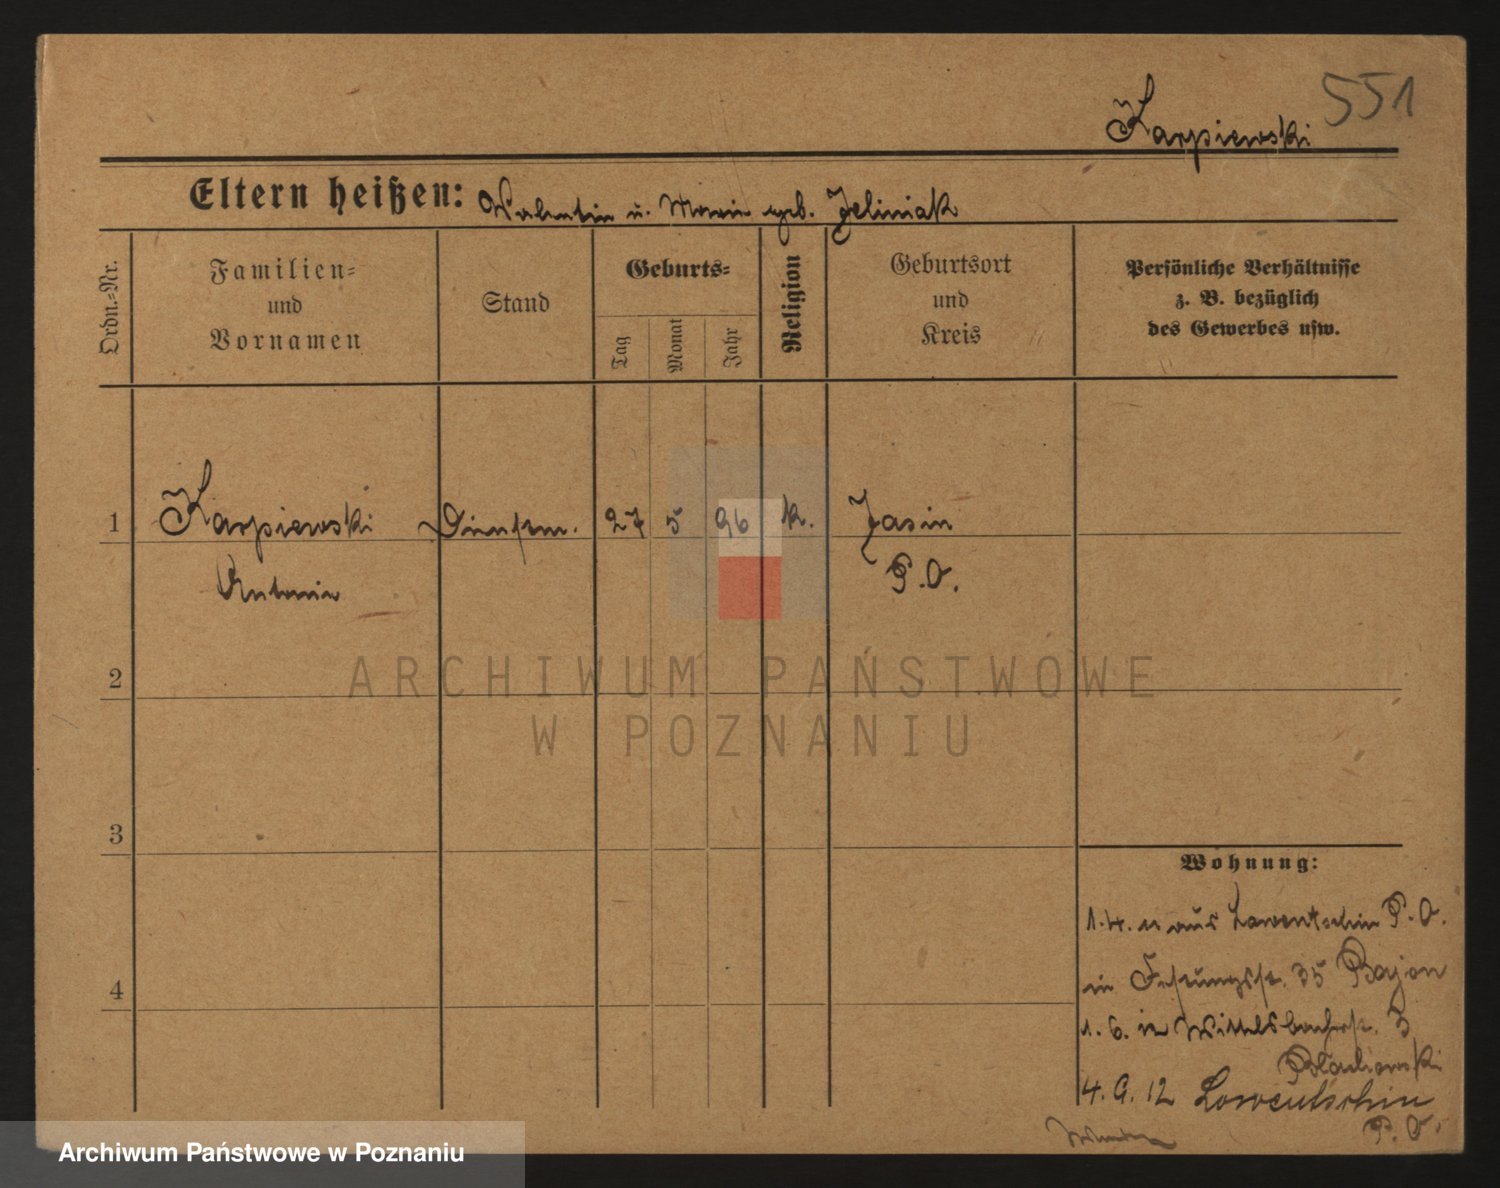 551
Karpiewski
Eltern heißen: Valentin u. Marie geb. Jeliniak
Ordn.=Nr.
Familien=
und
Vornamen
Stand
Geburts=
Tag
Monat
Jahr
Religion
Geburtsort
und
Kreis
Persönliche Verhältnisse
z. B. bezüglich
des Gewerbes usw.
1 Karpiewski Dienstm. 27 5 96 k. Jasin
Antonie P.O.
2
3
4
Wohnung:
1.4. 11 aus Lowentschin P.O.
in Festungsstr. 35 Bajon
1. 6. in Wittelsbacherstr. 3
4. 9. 12 Lowentschin
P. O.
ARCHIWUM PAŃSTWOWE
W POZNANIU
Archiwum Państwowe w Poznaniu